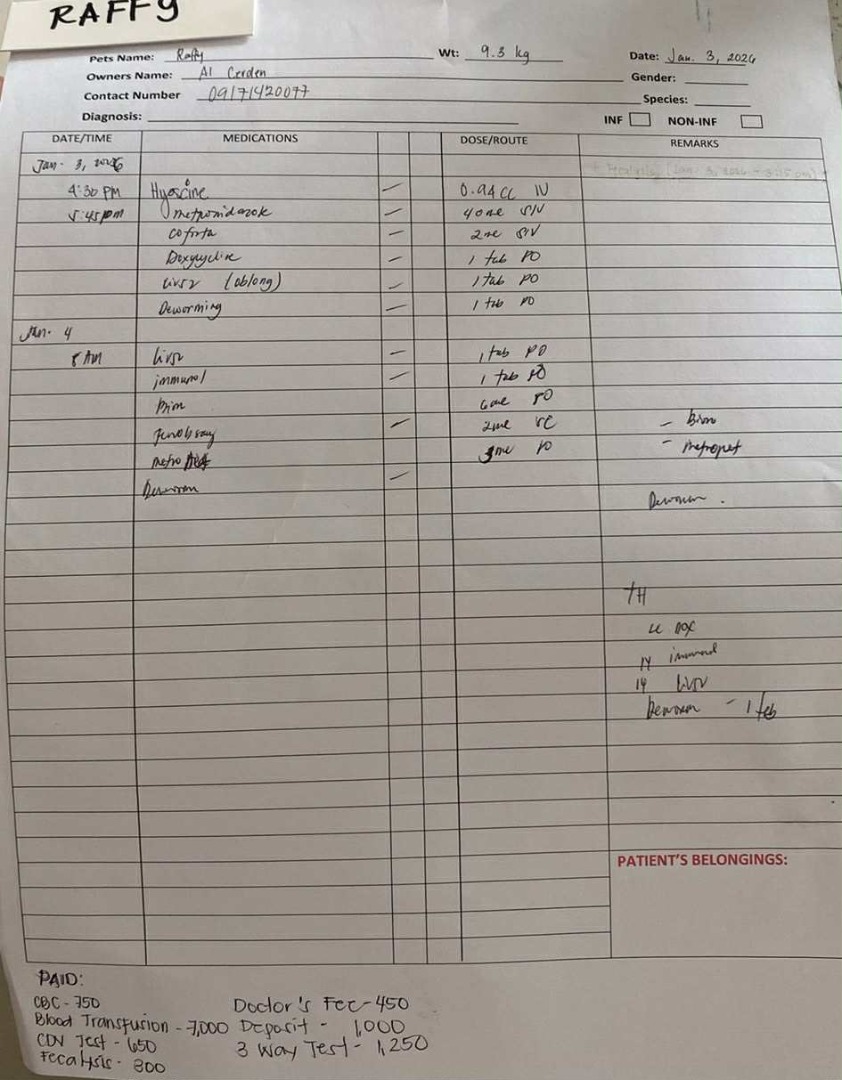 RAFFY
Pets Name: Raffy Wt: 9.3 kg Date: Jan. 3, 2026
Owners Name: Al Cerden Gender:
Contact Number 09171420077 Species:
Diagnosis: INF NON-INF
DATE/TIME MEDICATIONS DOSE/ROUTE REMARKS
Jan. 3, 2026
4:30 PM Hyoscine — 0.94 CC IV
5:45 pm metronidazole — 40 SIV
Coforta — 2 SIV
Doxycycline — 1 tab PO
Liv52 (oblong) — 1 tab PO
Deworming — 1 tab PO
Jan. 4
8 AM Liv52 — 1 tab PO
immunol — 1 tab PO
PO
— 2 — 
Metro 3 PO — Metropet
Deworm —
Deworm .
TH
14 immunol
14 Liv52
Deworm - 1 Feb
PATIENT'S BELONGINGS:
PAID:
CBC - 750 Doctor's Fee - 450
Blood Transfusion - 7,000 Deposit - 1,000
CDV Test - 650 3 Way Test - 1,250
Fecalysis - 300